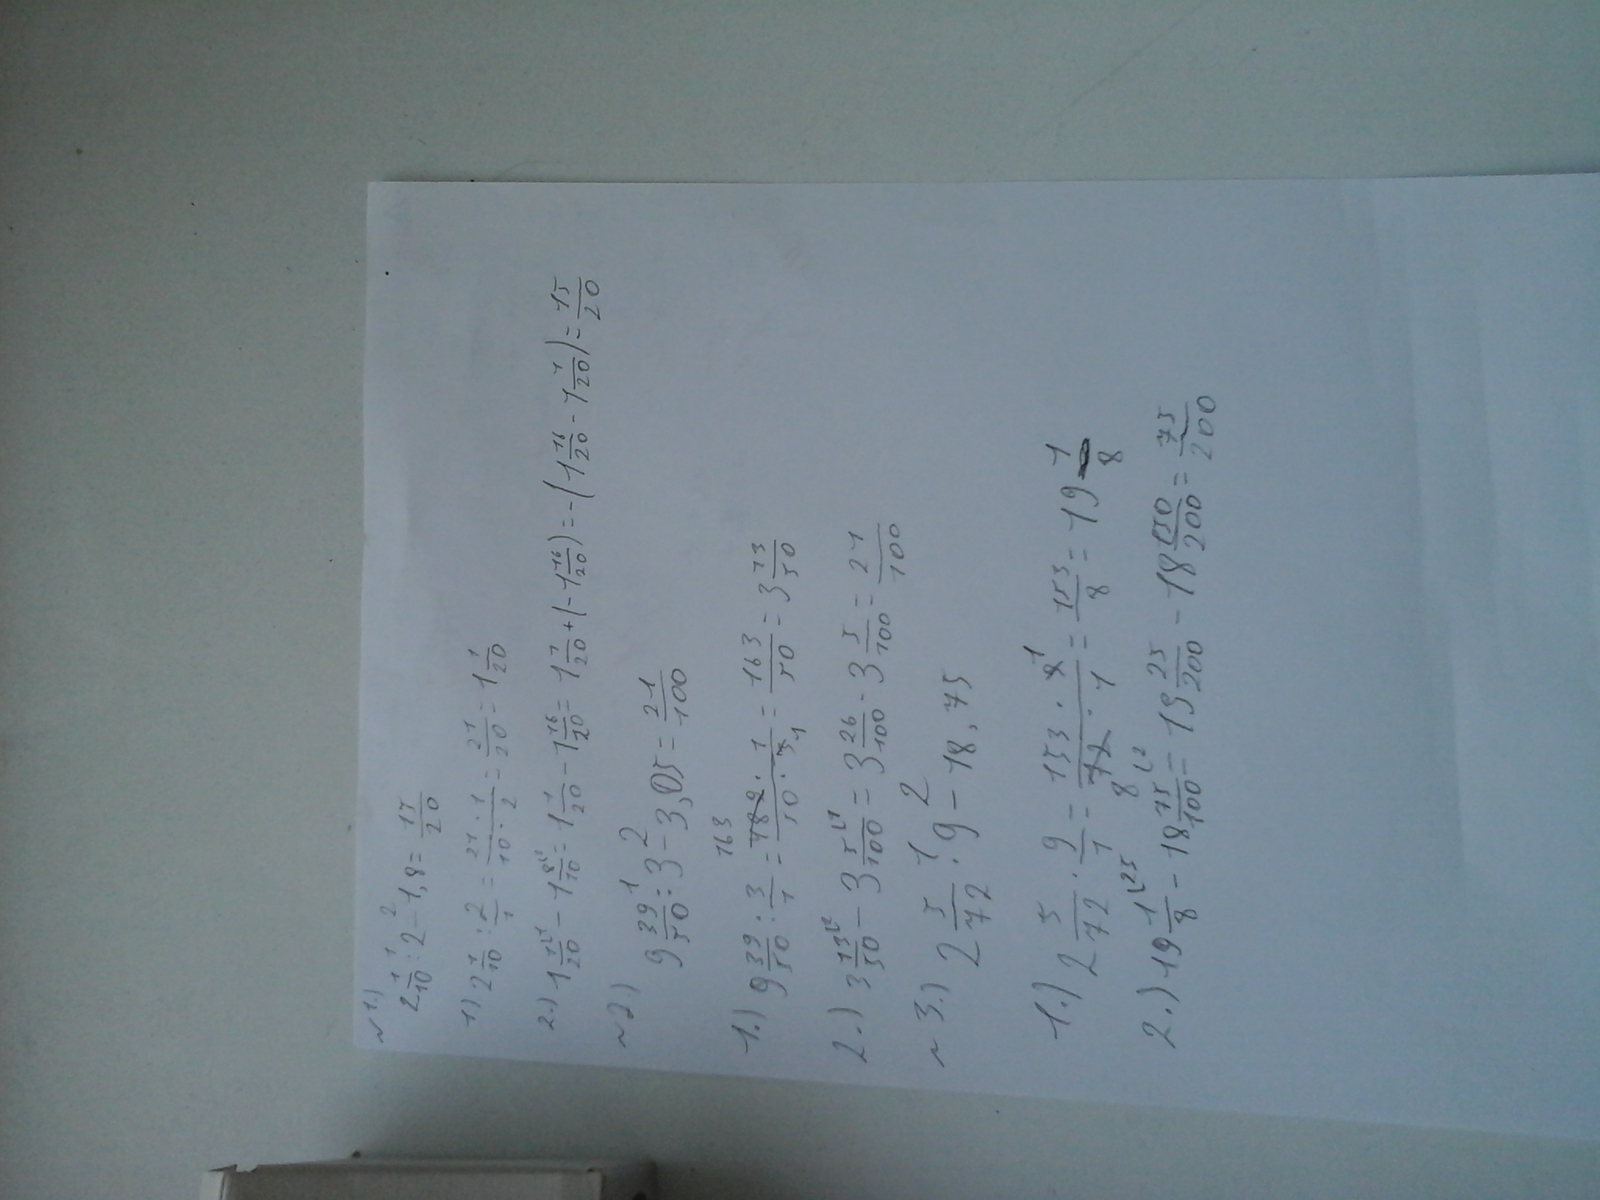 ~ 1.)
2 1/10 : 2 - 1,8 = 17/20
1) 2 1/10 : 2/1 = 21 · 1 / 10 · 2 = 21/20 = 1 1/20
2.) 1 1/20 - 1 8/10 = 1 1/20 - 1 16/20 = 1 1/20 + (- 1 16/20) = - (1 16/20 - 1 1/20) = 15/20
~ 2.)
9 39/50 : 3 - 3,05 = 21/100
163
1.) 9 39/50 : 3/1 = 489 · 1 / 50 · 3 = 163/50 = 3 13/50
2.) 3 13/50 - 3 5/100 = 3 26/100 - 3 5/100 = 21/100
~ 3.)
2 5/72 · 9 - 18,75
1.) 2 5/72 · 9/1 = 153 · 9 / 72 · 1 = 153/8 = 19 1/8
2.) 19 1/8 - 18 75/100 = 19 25/200 - 18 150/200 = 75/200